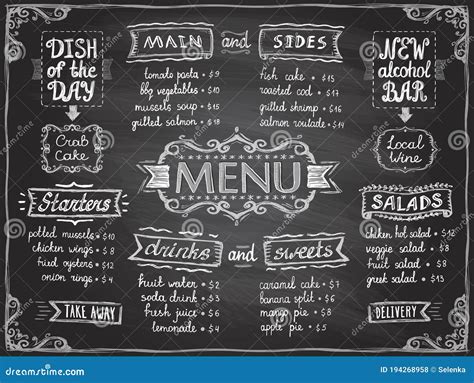 DISH
of the
DAY
Crab
Cake
MAIN and SIDES
tomato pasta • $ 9
bbq vegetables • $ 7
mussels soup • $ 15
grilled salmon • $ 18
fish cake • $ 15
roasted cod • $ 17
grilled shrimp • $ 16
salmon roulade • $ 14
NEW
alcohol
BAR
Local
Wine
MENU
Starters
potted mussels • $ 10
chicken wings • $ 8
fried oysters • $ 12
onion rings • $ 4
TAKE AWAY
drinks and sweets
fruit water • $ 2
soda drink • $ 3
fresh juice • $ 6
lemonade • $ 4
caramel cake • $ 7
banana split • $
mango pie • $
apple pie • $ 5
SALADS
chicken hot salad • $
veggie salad • $ 8
fruit salad • $
greek salad • $
DELIVERY
dreamstime.com
ID 194268958 © Selenka